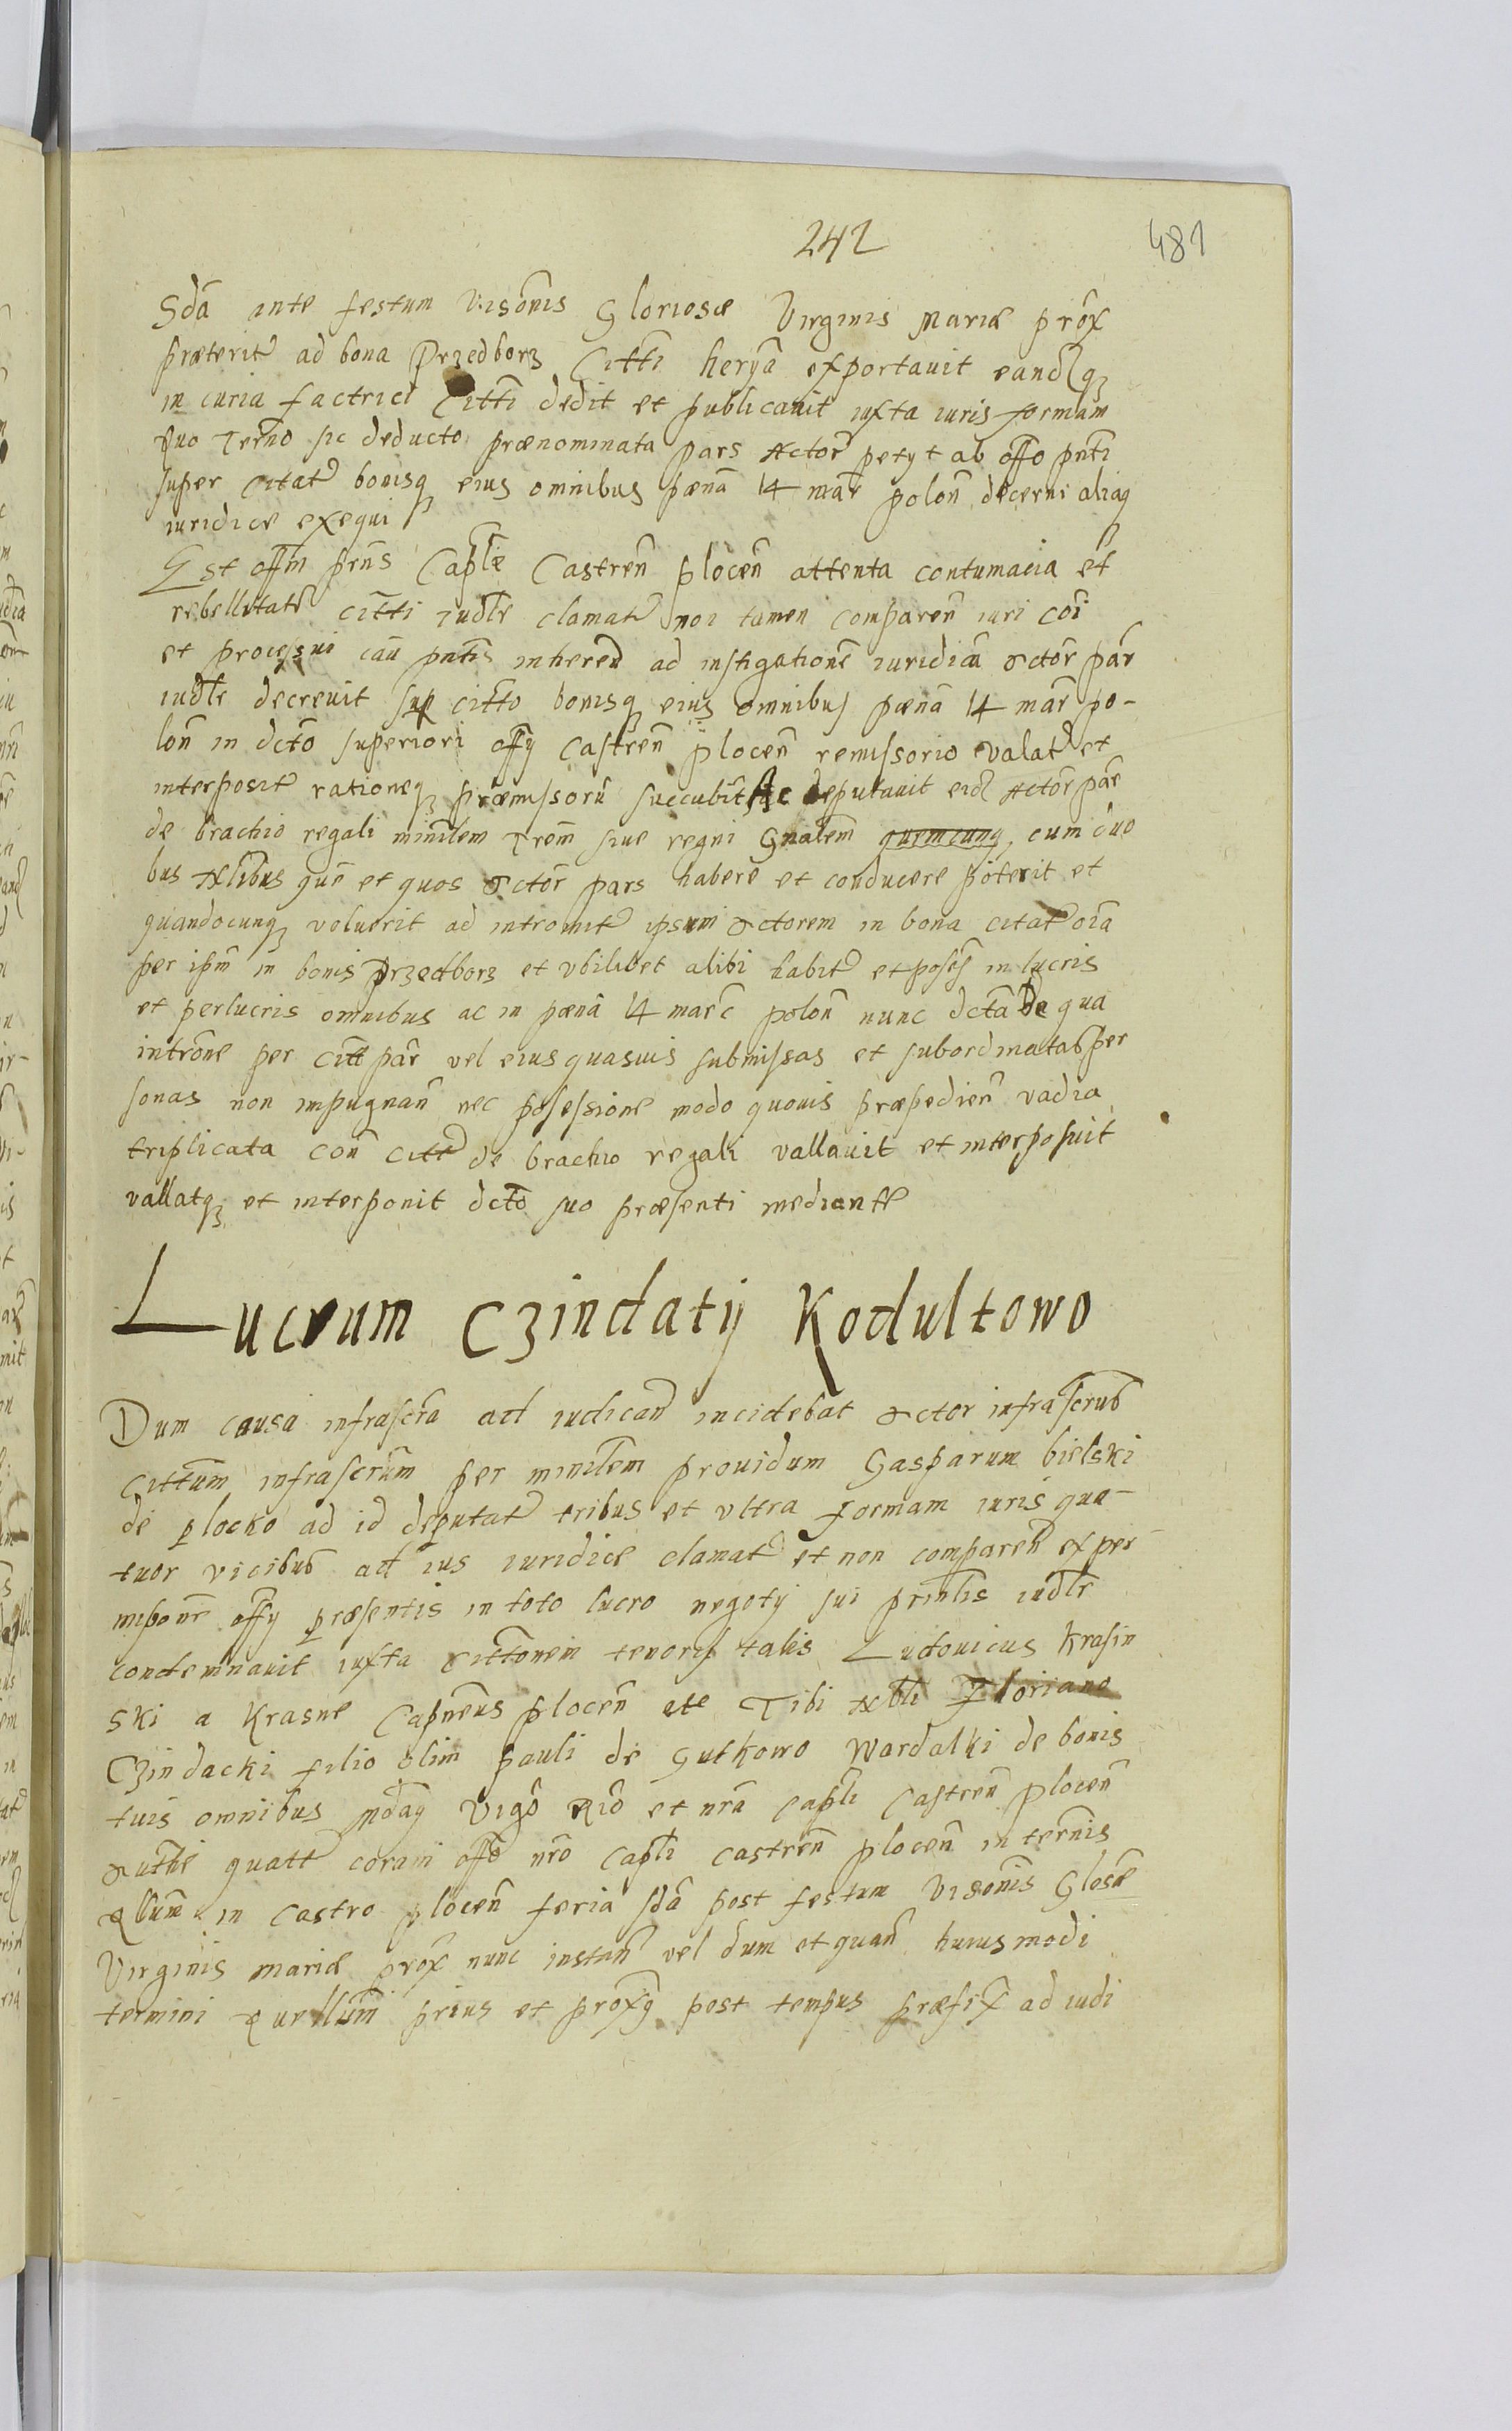 242
481
Sdã ante festum Visõnis Gloriosæ Virginis Mariæ prõx
præterit ad bona Przedborz Citti herỹa exportavit eandqз
in curia factrici Citti dedit et publicavit iuxta iuris formam
quo Termo sic deducto prænominata pars Actor petyt ab offo pnti
super citat bonisq eius omnibus pænã 14 mar polon decerni aliaq
iuridice exequi
Est offm pñs Caplæ Castreñ ploceñ attenta contumacia et
rebellitate citti iudle clamat non tamen compareñ iuri coi
et processui cau pntis inhereñ ad instigatione iuridicã Actor par
iudle decrevit sup citto bonisq eius omnibus pænã 14 mar po-
loñ in dcto superiori offy Castreñ ploceñ remissorio valat et
interposit rationeq præmissorũ succubit Ac deputavit eid Actor par
de brachio regali minilem Trom sive regni Gnalem quemcunq cum duo
bus Nlibus que et quos Actor pars habere et conducere poterit et
quandocunq voluerit ad intromit ipsum Actorem in bona citat oĩa
per ipm in bonis Przedborz et ubilibet alibi habit et posess in lucris
et perlucris omnibus ac in pænã 14 marc poloñ nunc dctã De qua
introñe per citt par vel eius quasuis submissas et subordinatas per
sonas non impugnañ nec possessione modo quovis præpedieñ vadia
triplicata coñ citt de brachio regali vallavit et interposuit
vallatqз et interponit dcto suo præsenti mediante
Lucrum Czindatij Kodultowo
Dum causa infrascrã ad iudicañ incidebat Actor infrascrus
Cittum infrascrum per minilem providum Gasparum bielski
de plocko ad id deputat tribus et ultra formam iuris qua-
tuor vicibus ad ius iuridice clamat et non compareñ ex per
misone offy præsentis in toto lucro negoty sui prinlis iudlr
condemnavit iuxta Cittonem tenoris talis Ludovicus Krasin
ski a Krasne Capneus ploceñ ete Tibi Nbli Floriano
Czindacki filio olim Pauli de Gutkowo Wardalki de bonis
tuis omnibus Mdaq Vigõ Riõ et nrã Capli Castreñ Ploceñ
Authe quatt coram offo nro Capli castreñ ploceñ in terminis
Qllum in Castro ploceñ feria sdã post festum Visonis Glosæ
Virginis Mariæ prox nunc instañ vel dum et quañ huiusmodi
termini Qurllum prius et proxȳ post tempus præfix ad iudi